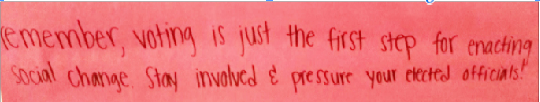 emember, voting is just the first step for enacting
social change. Stay involved & pressure your elected officials!